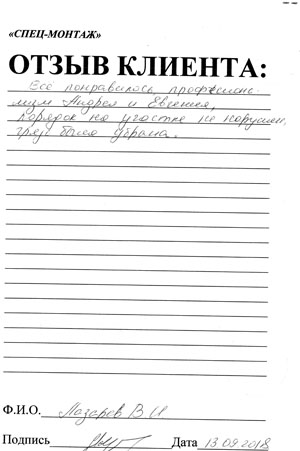 «СПЕЦ-МОНТАЖ»
ОТЗЫВ КЛИЕНТА:
Всё понравилось, професиона-
лизм Андрея и Евгения,
порядок на участке не нарушен,
грязь была убрана.
Ф.И.О. Лазарев В И
Подпись Дата 13 09 2018